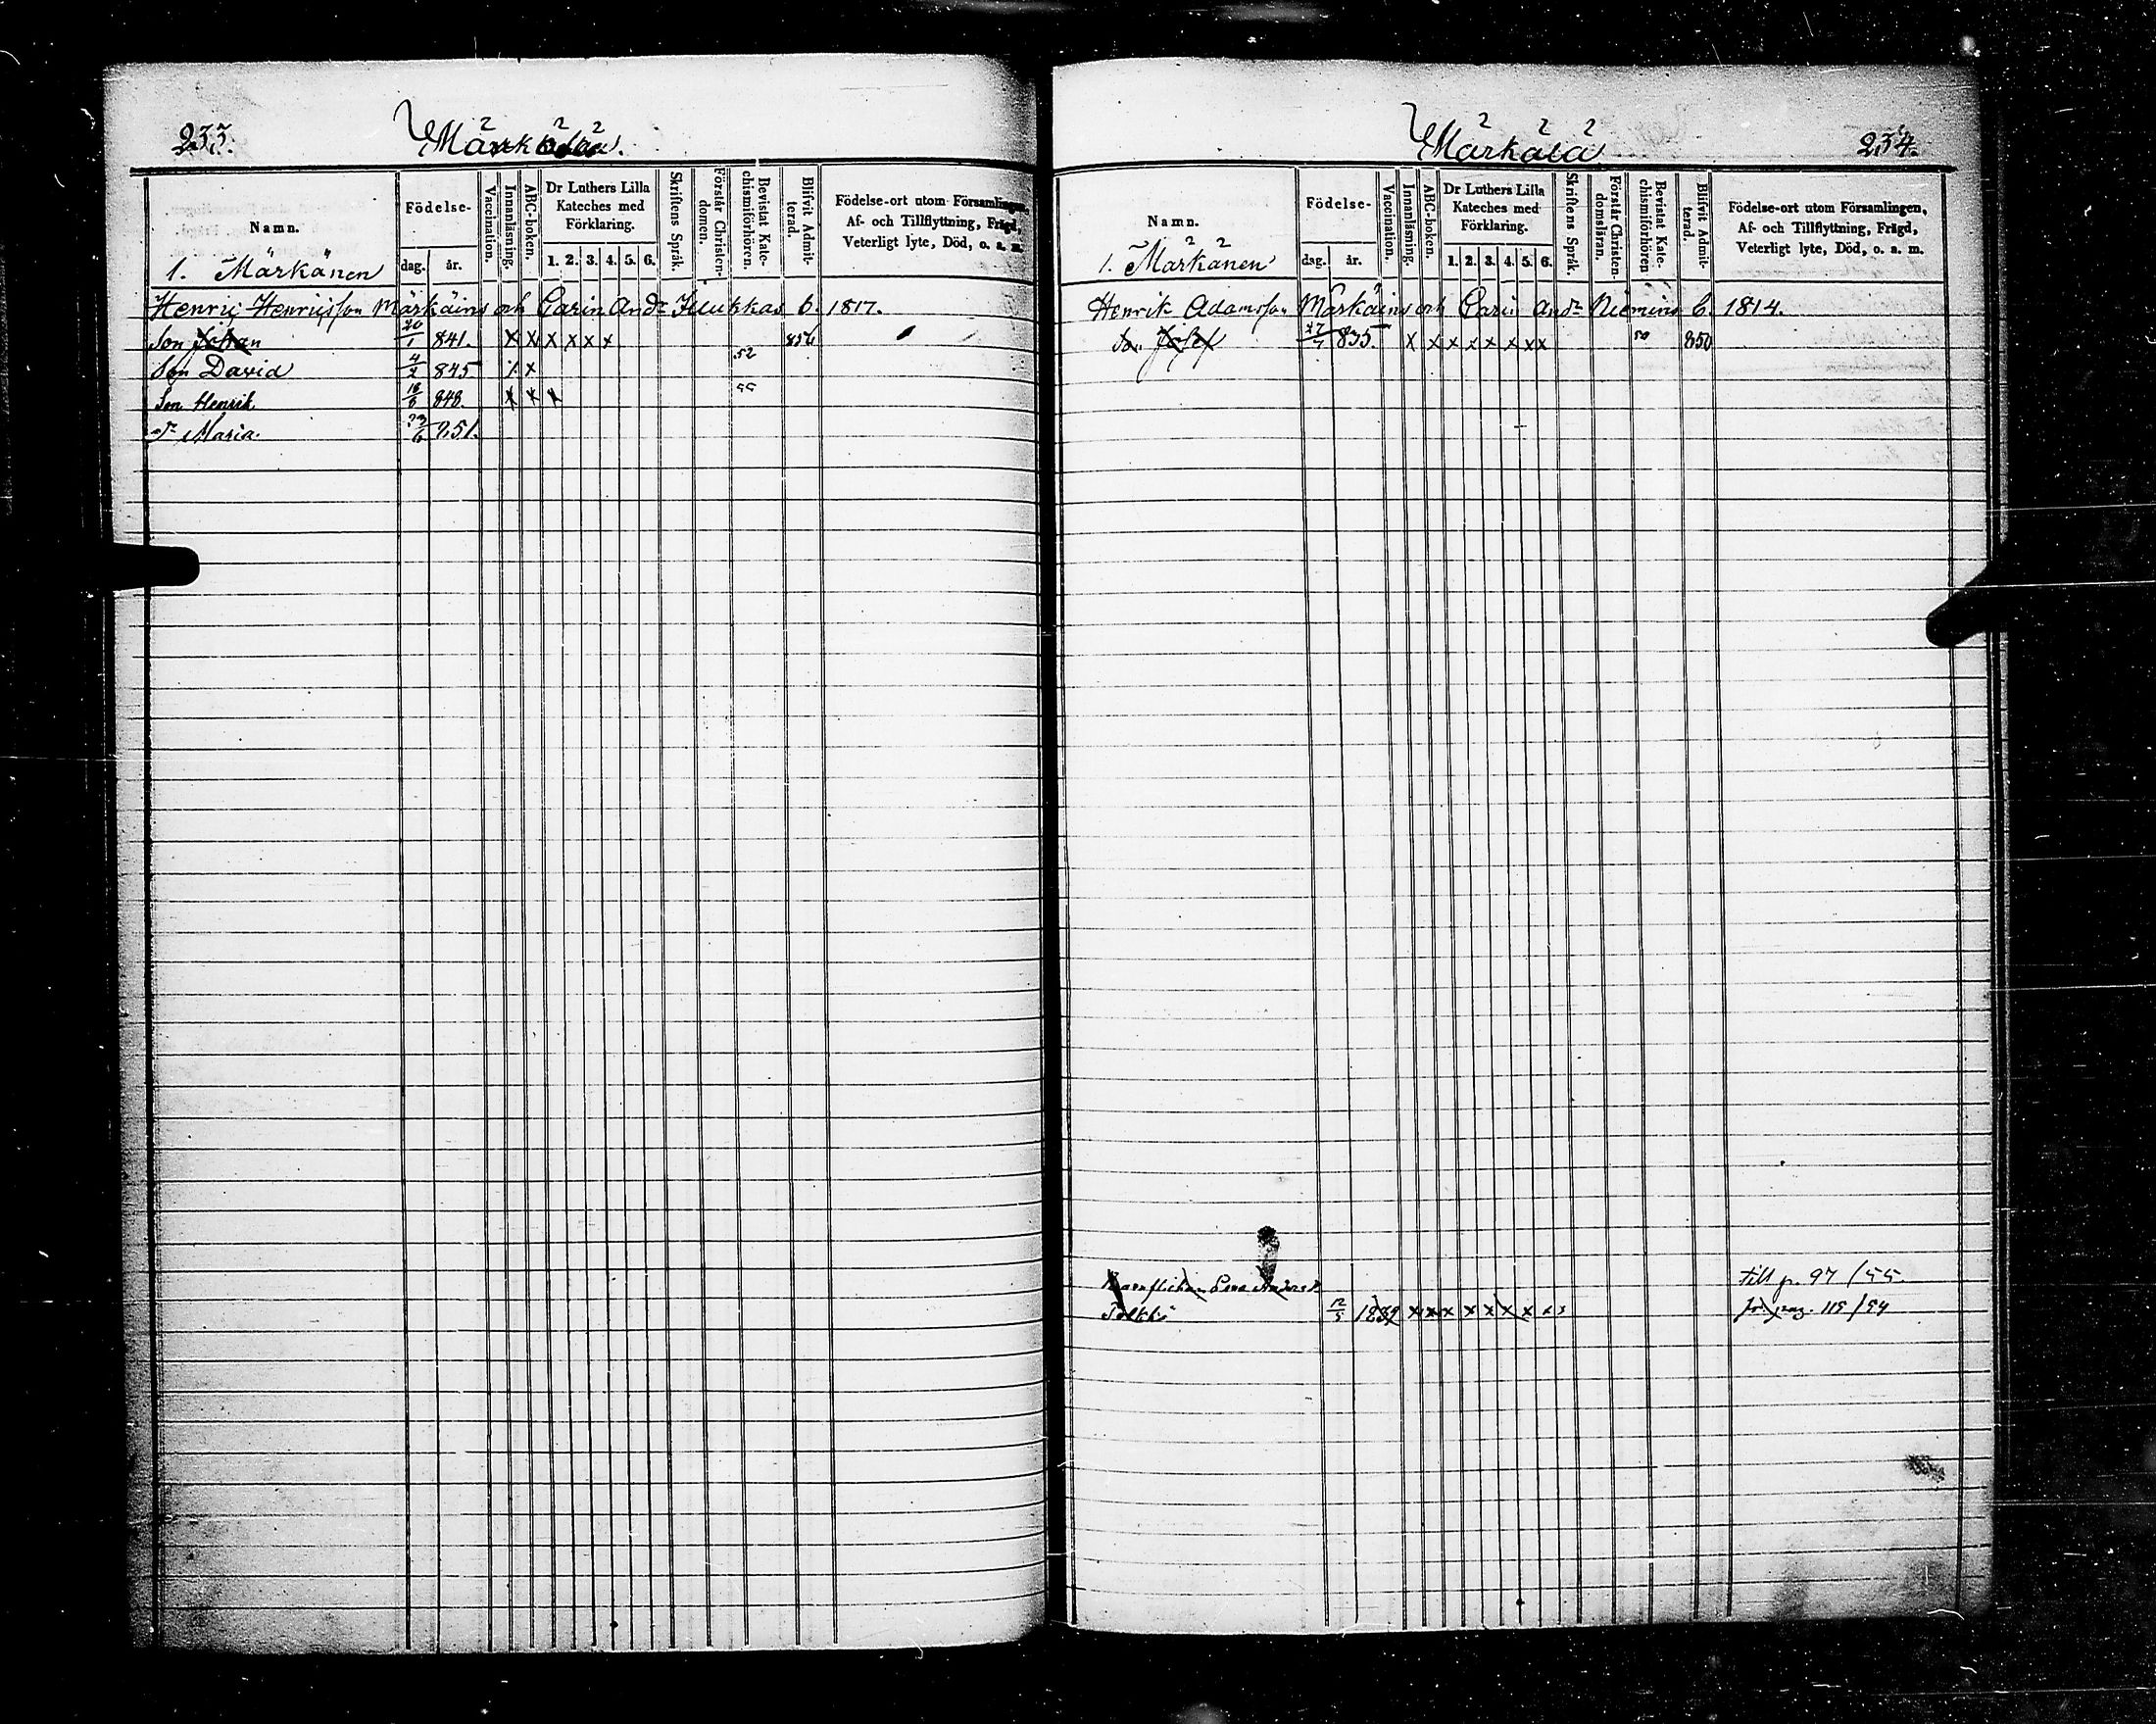 233.
Märkälä.
Namn.
Födelse-
dag.
år.
Vaccination.
Innanläsning.
ABC-boken.
Dr Luthers Lilla
Kateches med
Förklaring.
1. 2. 3. 4. 5. 6.
Skriftens Språk.
Förstår Christen-
domen.
Bevistat Kate-
chismiförhören.
Blifvit Admit-
terad.
Födelse-ort utom Församlingen,
Af- och Tillflyttning, Frägd,
Veterligt lyte, Död, o. a. m.
1. Märkänen
Henric Henricsson Märkäins och Carin And:r Ilukkas b. 1817.
Son Johan 20/1 841. x x x x x x 856
Son David 4/2 845 x 52
Son Henrik 18/8 848. x x x 55
Maria. 6 851.
Märkälä
234.
Namn.
Födelse-
dag.
år.
Vaccination.
Innanläsning.
ABC-boken.
Dr Luthers Lilla
Kateches med
Förklaring.
1. 2. 3. 4. 5. 6.
Skriftens Språk.
Förstår Christen-
domsläran.
Bevistat Kate-
chismiförhören
Blifvit Admit-
terad.
Födelse-ort utom Församlingen,
Af- och Tillflyttning, Frägd,
Veterligt lyte, Död, o. a. m.
1. Märkänen
Henrik Adamsson Märkäins och Carin And:r Niemins b. 1814.
Son Josef 27/7 835. x x x x x x x x 50 850
till p. 97/55.
12/5 x x x x x x x x x 115/54